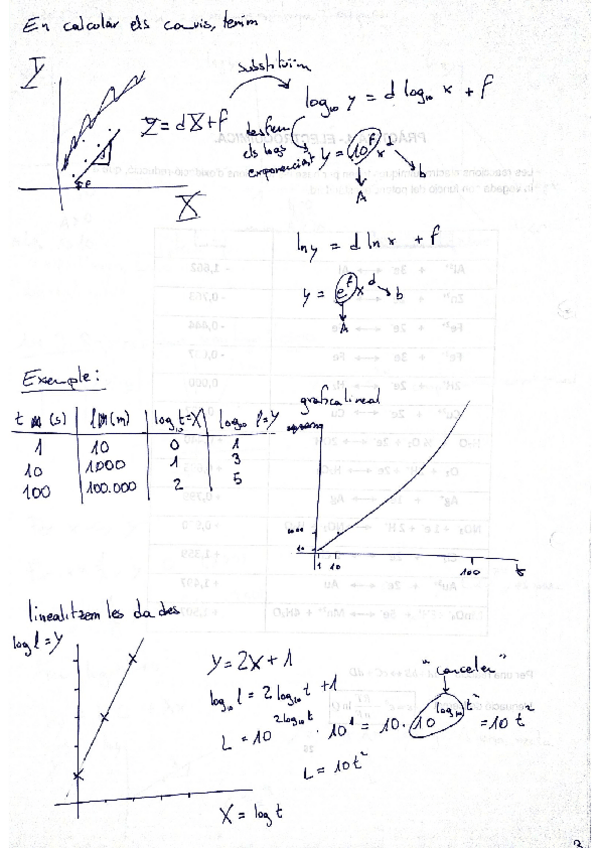 En calcolar els canvis, tenim
Y
substituïm
Y = dX+f
log₁₀ y = d log₁₀ x + f
desfem
els logs
exponenciat
y = 10^f x^d
b
A
f
X
ln y = d ln x + f
y = e^f x^d
b
A
Exemple:
t (s) l (m) log₁₀ t=X log₁₀ l=Y
1 10 0 1
10 1000 1 3
100 100.000 2 5
grafica lineal
1000
10
1 10 100 t
linealitzem les dades
log l = Y
Y = 2X + 1
log₁₀ l = 2 log₁₀ t + 1
"cancelen"
L = 10^(2log₁₀ t) · 10¹ = 10 · 10^(log₁₀ t²) = 10 t²
L = 10t²
X = log t
3